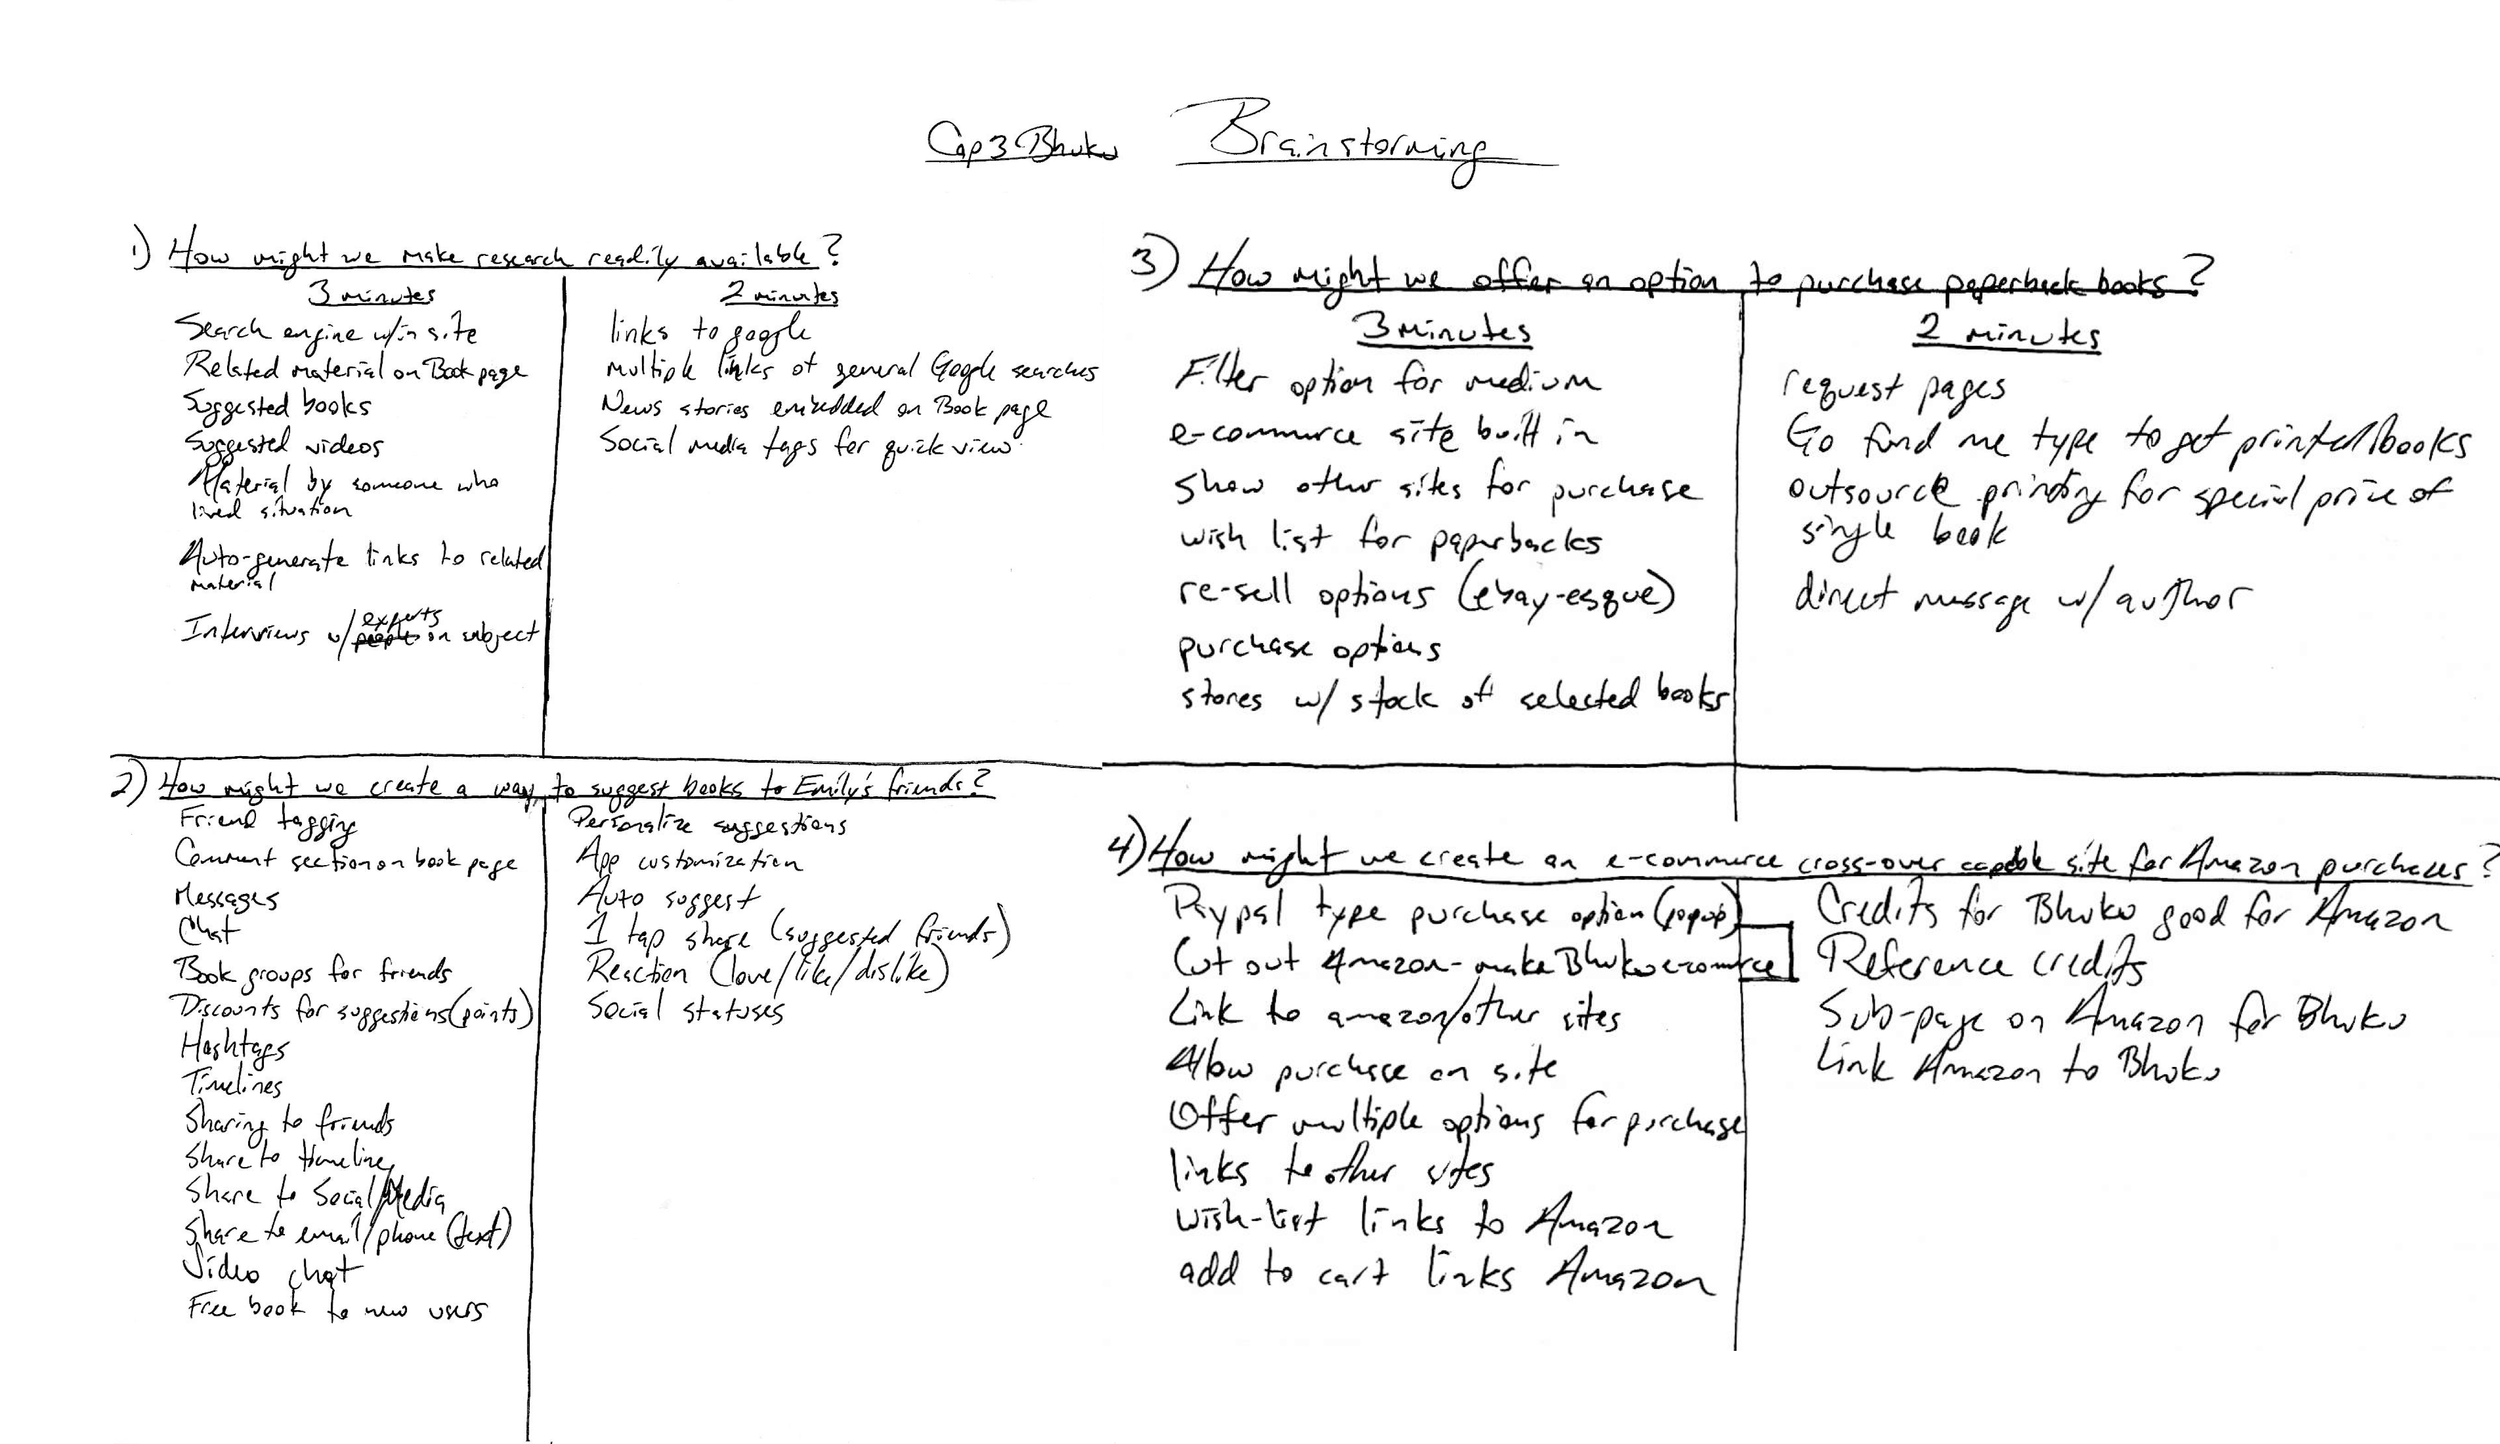 Cap 3 Bhuku Brainstorming
1) How might we make research readily available?
3 minutes
Search engine w/in site
Related material on Book page
Suggested books
Suggested videos
Material by someone who
lived situation
Auto-generate links to related
material
experts
Interviews w/ people on subject
2 minutes
links to google
multiple links of general Google searches
News stories embedded on Book page
Social media tags for quick view
2) How might we create a way to suggest books to Emily's friends?
Friend tagging
Comment section on book page
Messages
Chat
Book groups for friends
Discounts for suggestions (points)
Hashtags
Timelines
Sharing to friends
Share to timeline
Share to Social Media
Share to email/phone (text)
Video chat
Free book to new users
Personalize suggestions
App customization
Auto suggest
1 tap share (suggested friends)
Reaction (love/like/dislike)
Social statuses
3) How might we offer an option to purchase paperback books?
3 minutes
Filter option for medium
e-commerce site built in
show other sites for purchase
wish list for paperbacks
re-sell options (ebay-esque)
purchase options
stores w/ stock of selected books
2 minutes
request pages
Go fund me type to get printed books
outsource printing for special price of
single book
direct message w/ author
4) How might we create an e-commerce cross-over capable site for Amazon purchases?
Paypal type purchase option (popup)
Cut out Amazon - make Bhuku ecommerce
Link to amazon/other sites
Allow purchase on site
Offer multiple options for purchase
links to other sites
wish-list links to Amazon
add to cart links Amazon
Credits for Bhuku good for Amazon
Reference credits
Sub-page on Amazon for Bhuku
Link Amazon to Bhuku